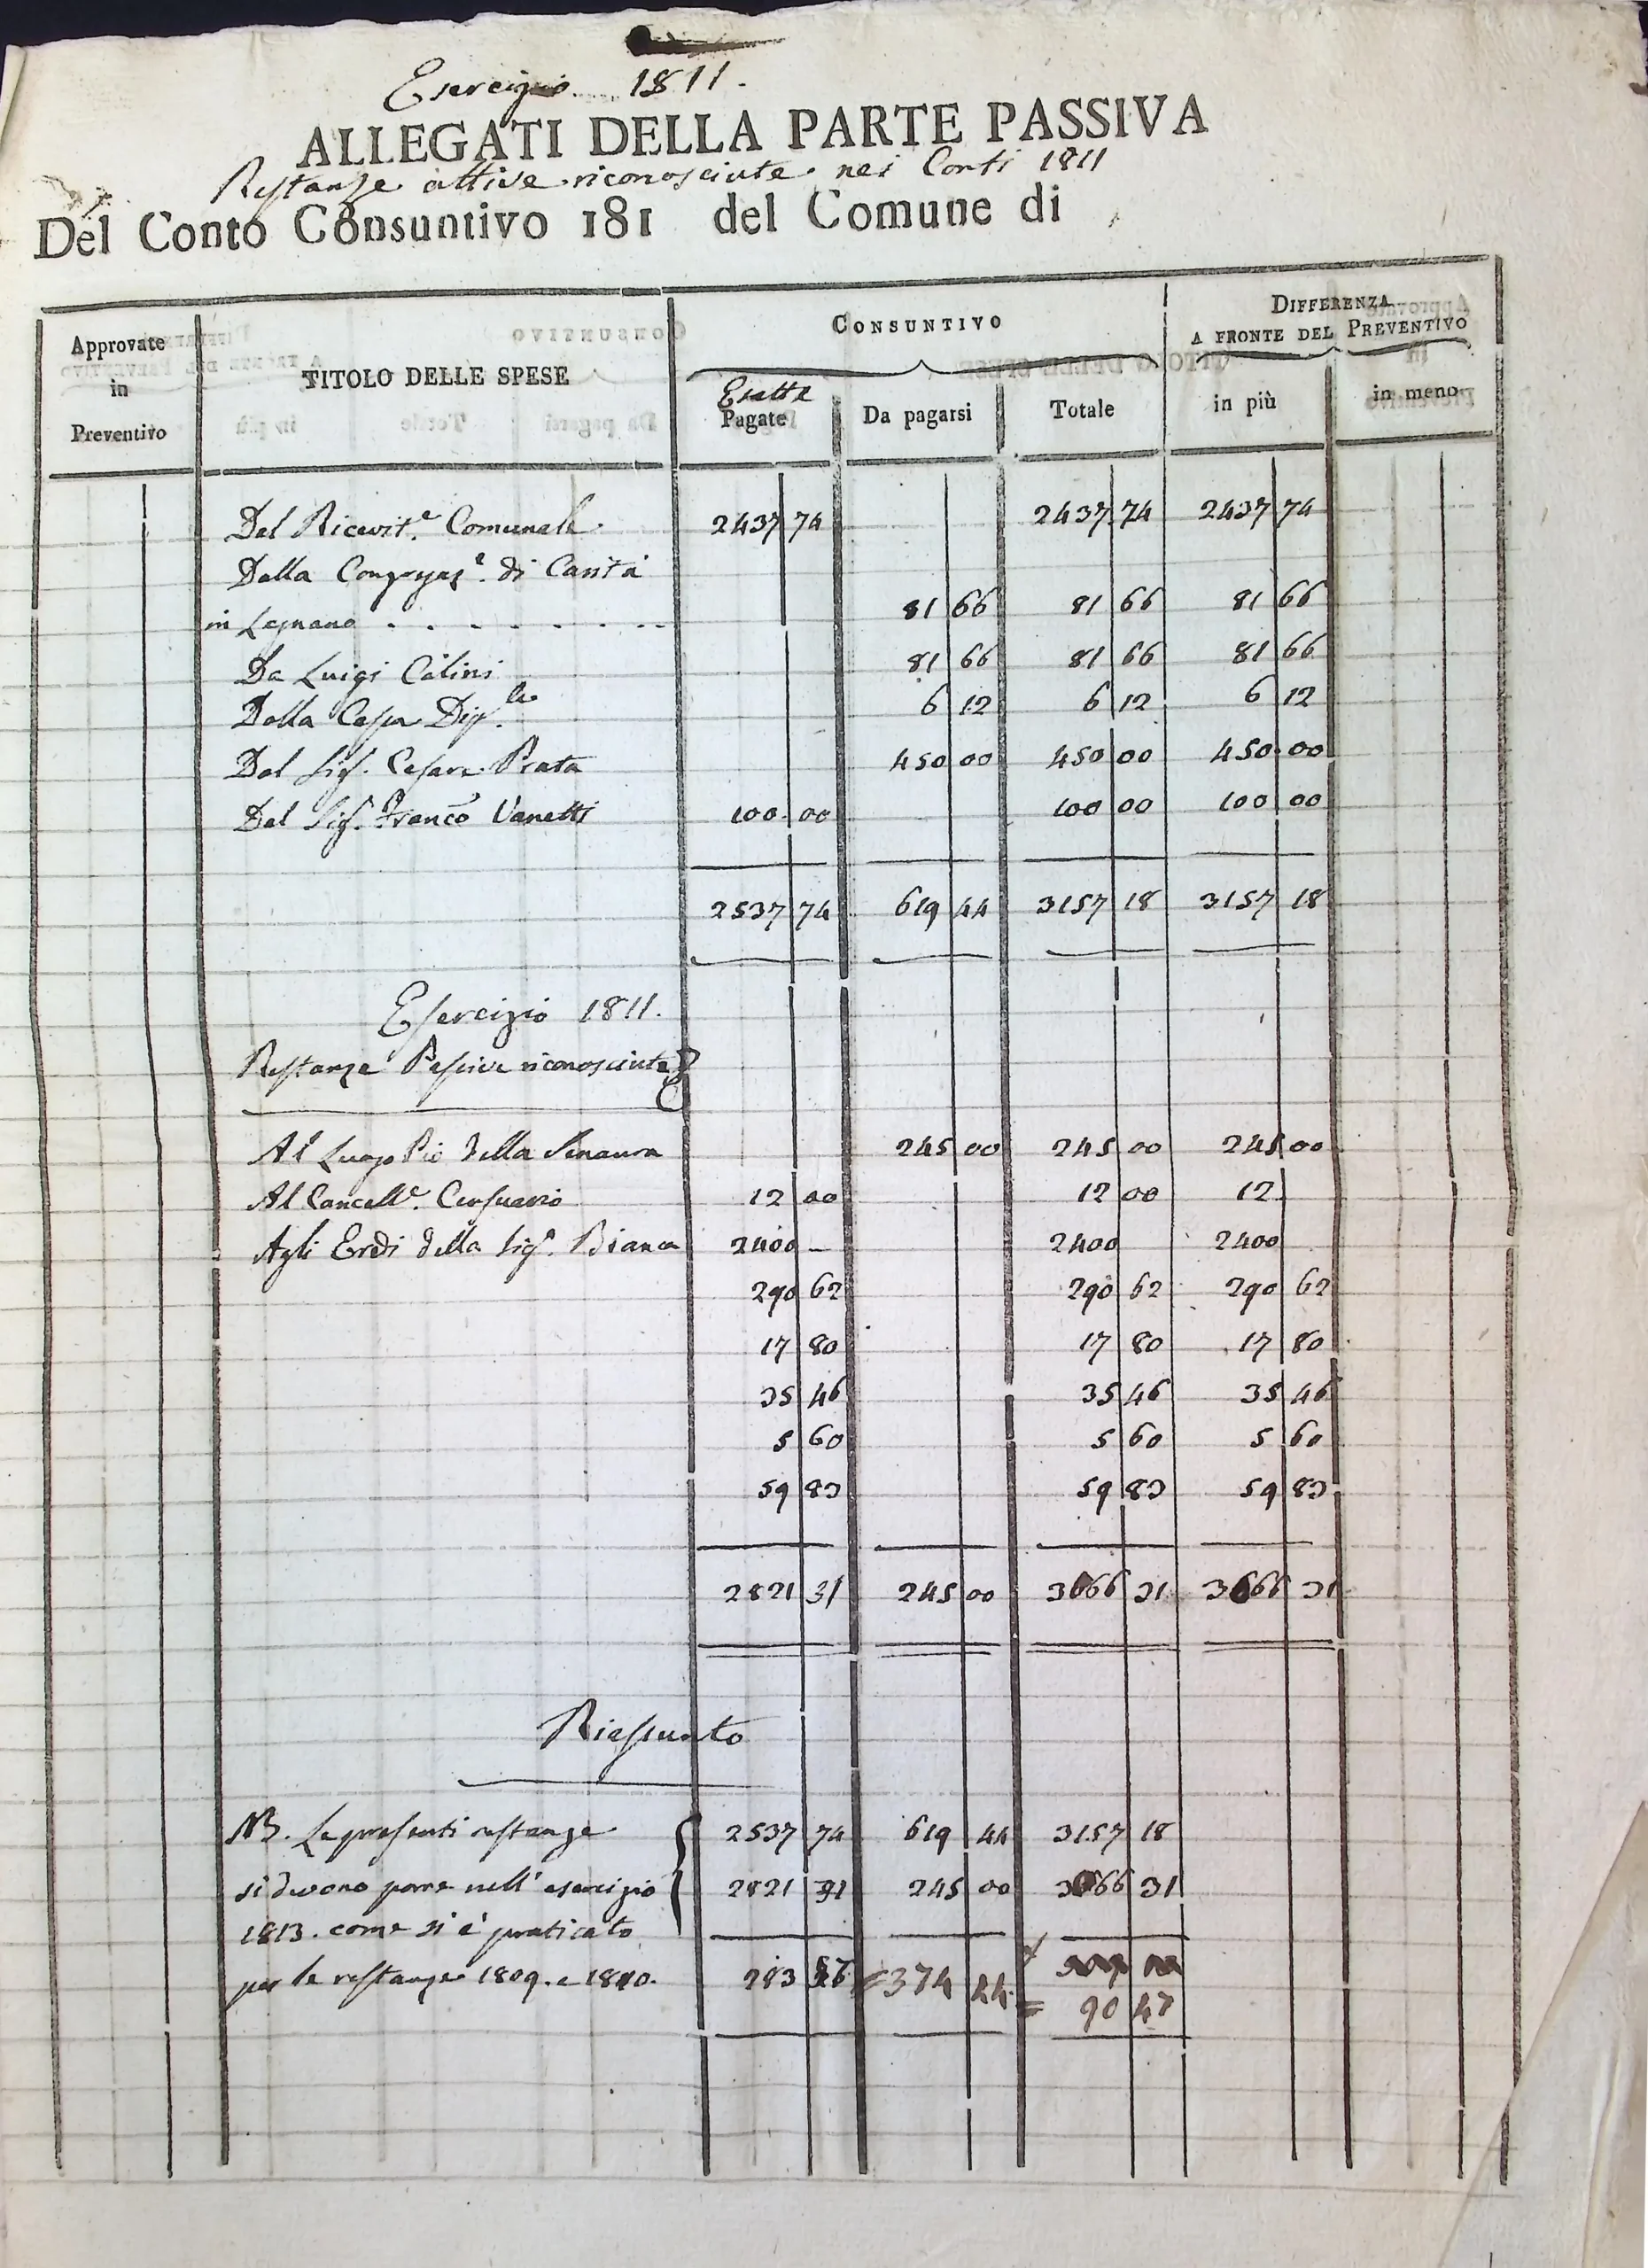 Esercizio 1811.
ALLEGATI DELLA PARTE PASSIVA
Restanze attive riconosciute nei Conti 1811
Del Conto Consuntivo 181 del Comune di
Approvate in Preventivo
TITOLO DELLE SPESE
CONSUNTIVO
DIFFERENZA A FRONTE DEL PREVENTIVO
Esatte
Pagate Da pagarsi Totale in più in meno
Dal Ricevit.e Comunale 2437 74 2437 74 2437 74
Dalla Congregaz.e di Carità
in Legnano 81 66 81 66 81 66
Da Luigi Calini 81 66 81 66 81 66
Dalla Cassa Dip.le 6 12 6 12 6 12
Dal Sig.r Cesare Prata 450 00 450 00 450 00
Dal Sig.r Franco Vanetti 100 00 100 00 100 00
2537 74 619 44 3157 18 3157 18
Esercizio 1811.
Restanze Passive riconosciute
Al Luogo Pio della Senavra 245 00 245 00 245 00
Al Cancell.e Censuario 12 00 12 00 12
Agli Eredi della Sig.a Bianca 2400 - 2400 2400
290 62 290 62 290 62
17 80 17 80 17 80
35 46 35 46 35 46
5 60 5 60 5 60
59 83 59 83 59 83
2821 31 245 00 3066 31 3066 31
Riassunto
NB. Le presenti restanze 2537 74 619 44 3157 18
si devono porre nell' esercizio 2821 31 245 00 3066 31
1813. come si è praticato
per le restanze 1809. e 1810. 283 57 = 374 44
= 90 87